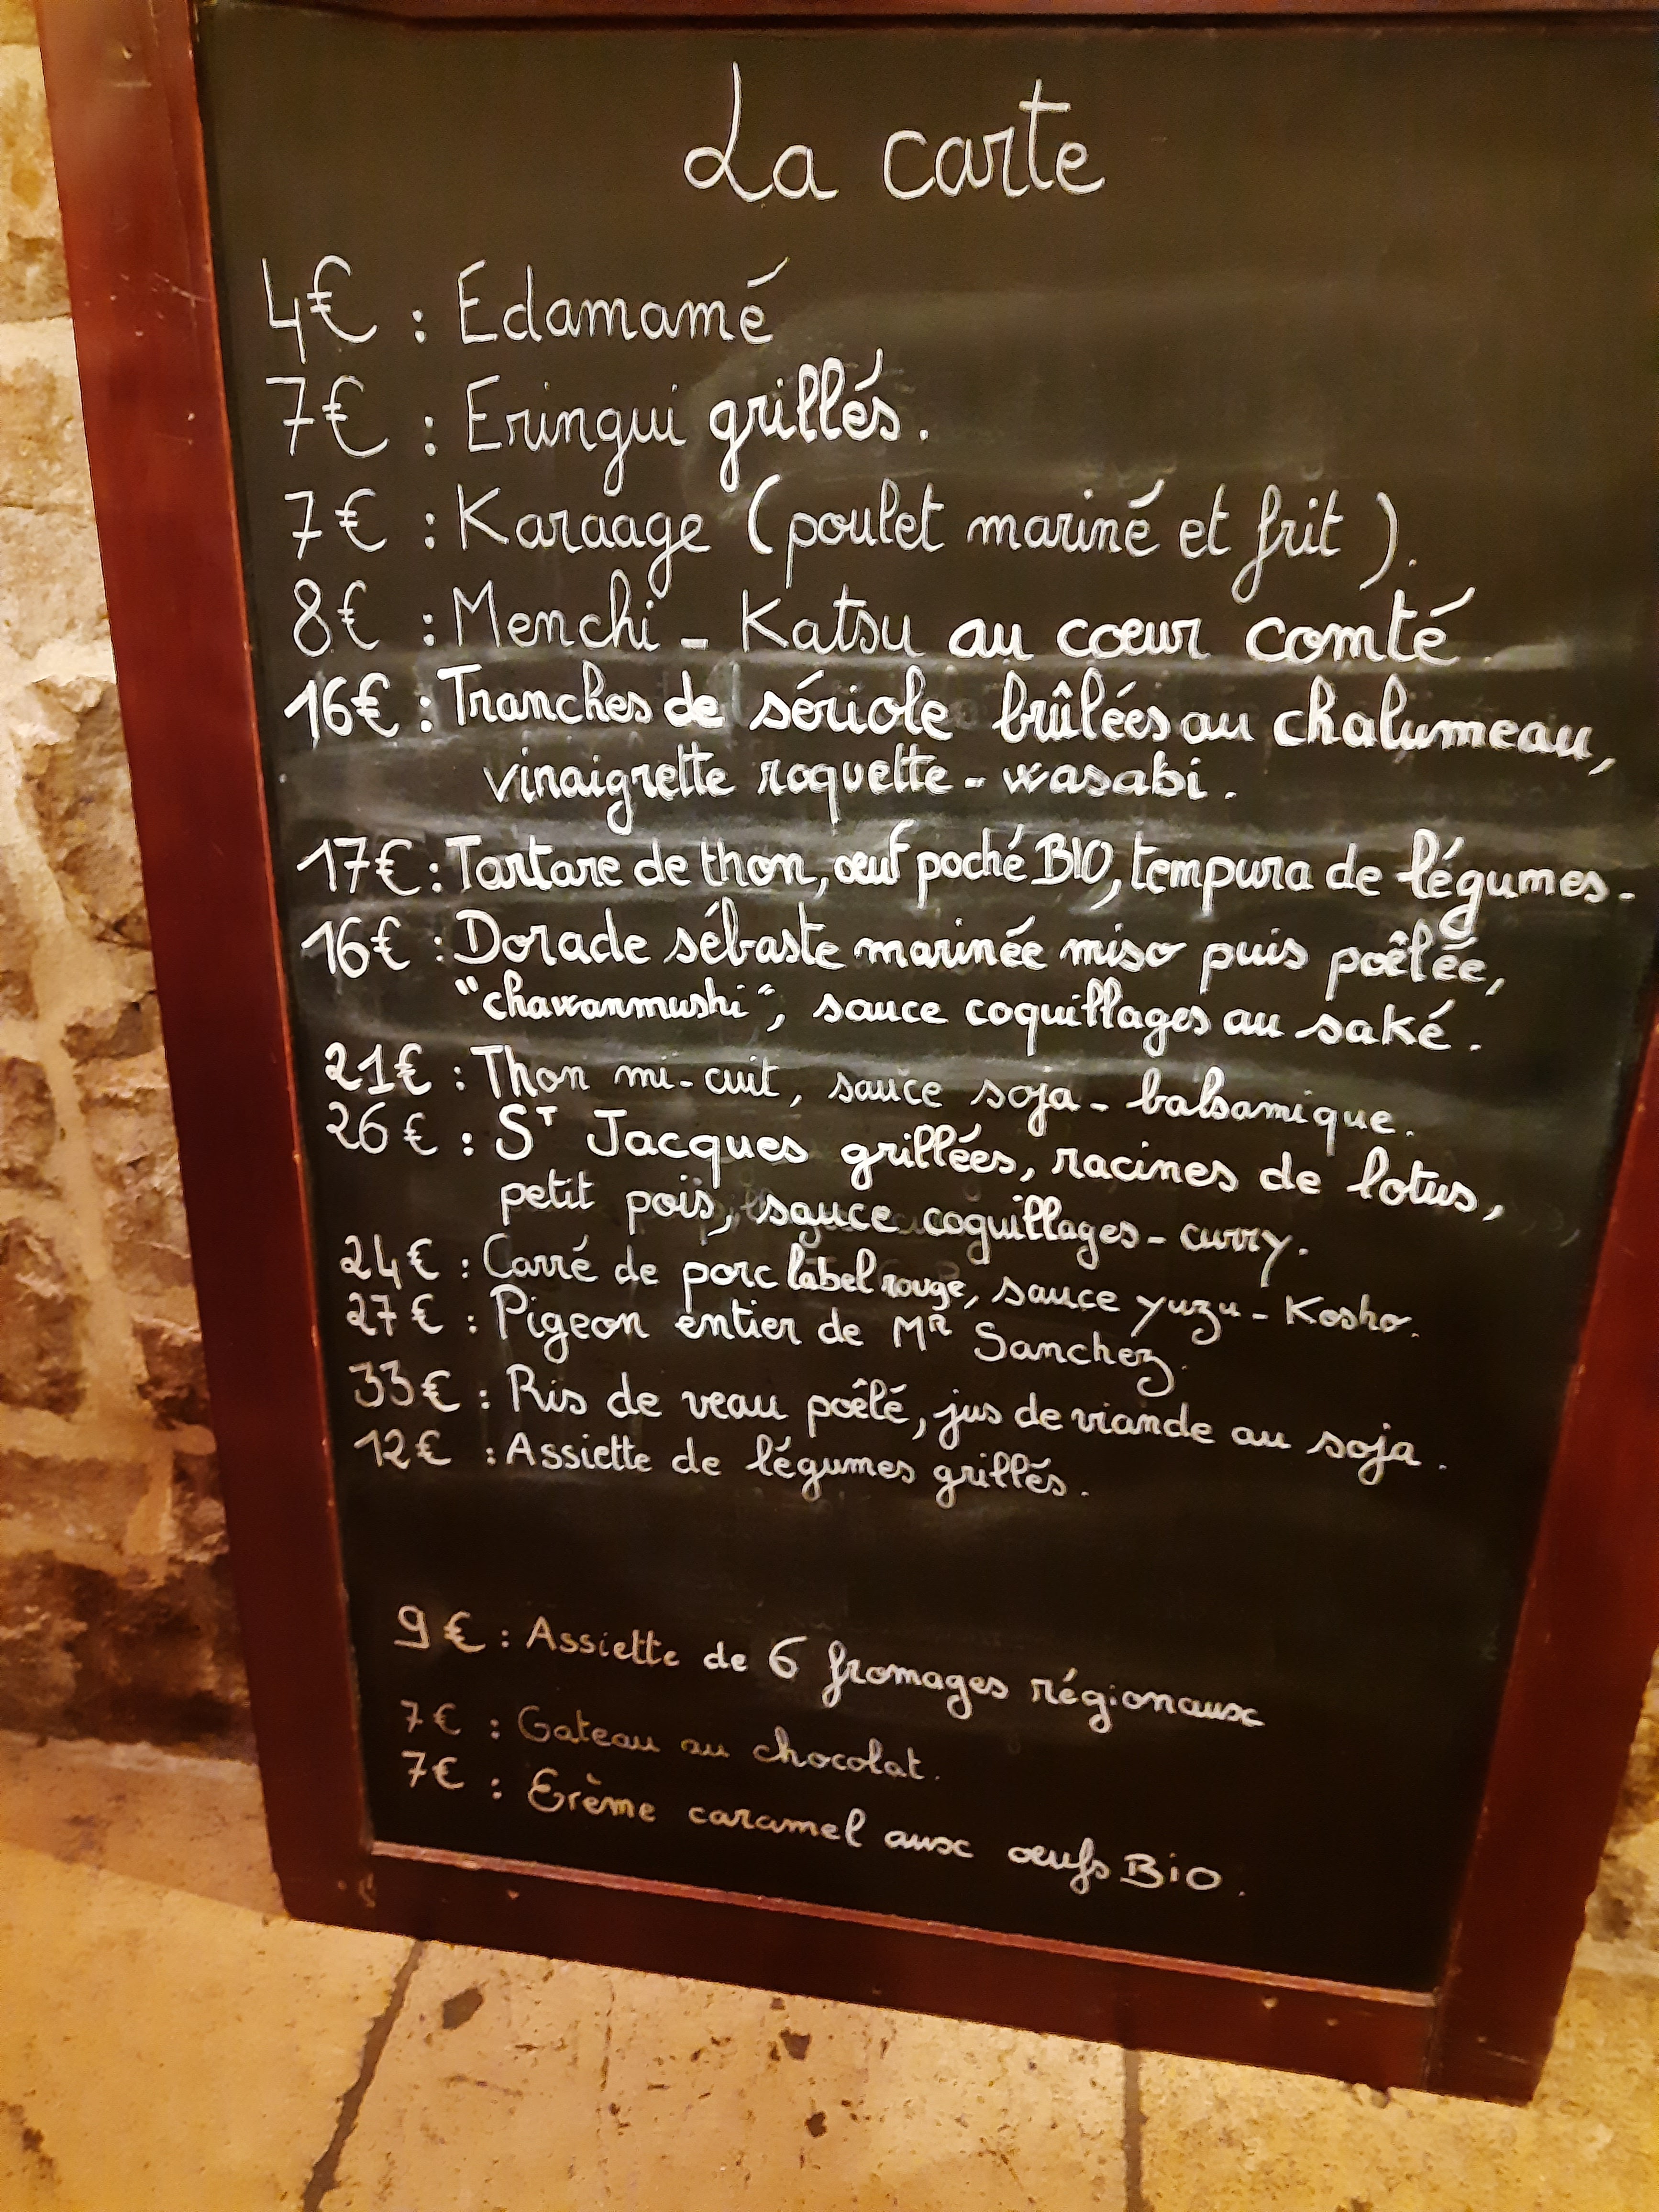 La carte
4€ : Edamamé
7€ : Eringui grillés.
7€ : Karaage (poulet mariné et frit).
8€ : Menchi - Katsu au cœur comté
16€ : Tranches de sériole brûlées au chalumeau,
vinaigrette roquette - wasabi.
17€ : Tartare de thon, œuf poché BIO, tempura de légumes.
16€ : Dorade sébaste marinée miso puis poêlée,
"chawanmushi", sauce coquillages au saké.
21€ : Thon mi-cuit, sauce soja - balsamique.
26€ : St Jacques grillées, racines de lotus,
petit pois, sauce coquillages - curry.
24€ : Carré de porc label rouge, sauce yuzu - Kosho.
27€ : Pigeon entier de MR Sanchez.
33€ : Ris de veau poêlé, jus de viande au soja.
12€ : Assiette de légumes grillés.
9€ : Assiette de 6 fromages régionaux
7€ : Gateau au chocolat.
7€ : Crème caramel aux œufs BiO.